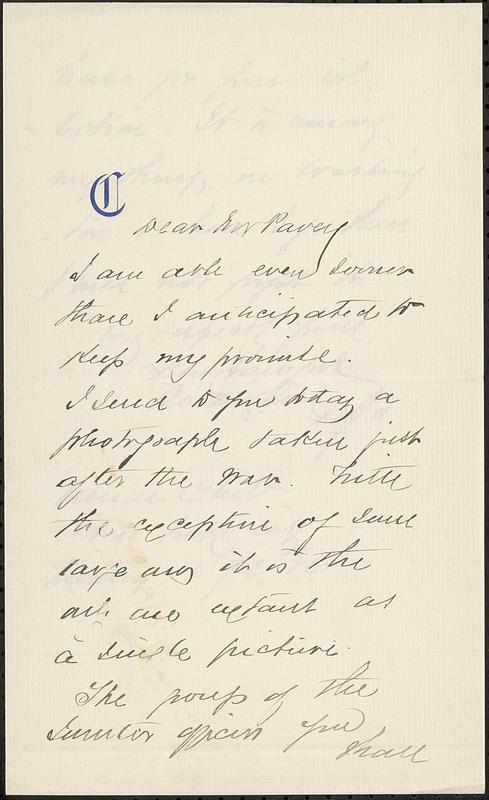 C
Dear Mr Pavey
I am able even sooner
than I anticipated to
keep my promise.
I send to you today a
photograph taken just
after the war. With
the exception of some
large ones it is the
only one extant as
a single picture.
The group of the
Sumter officers you
shall